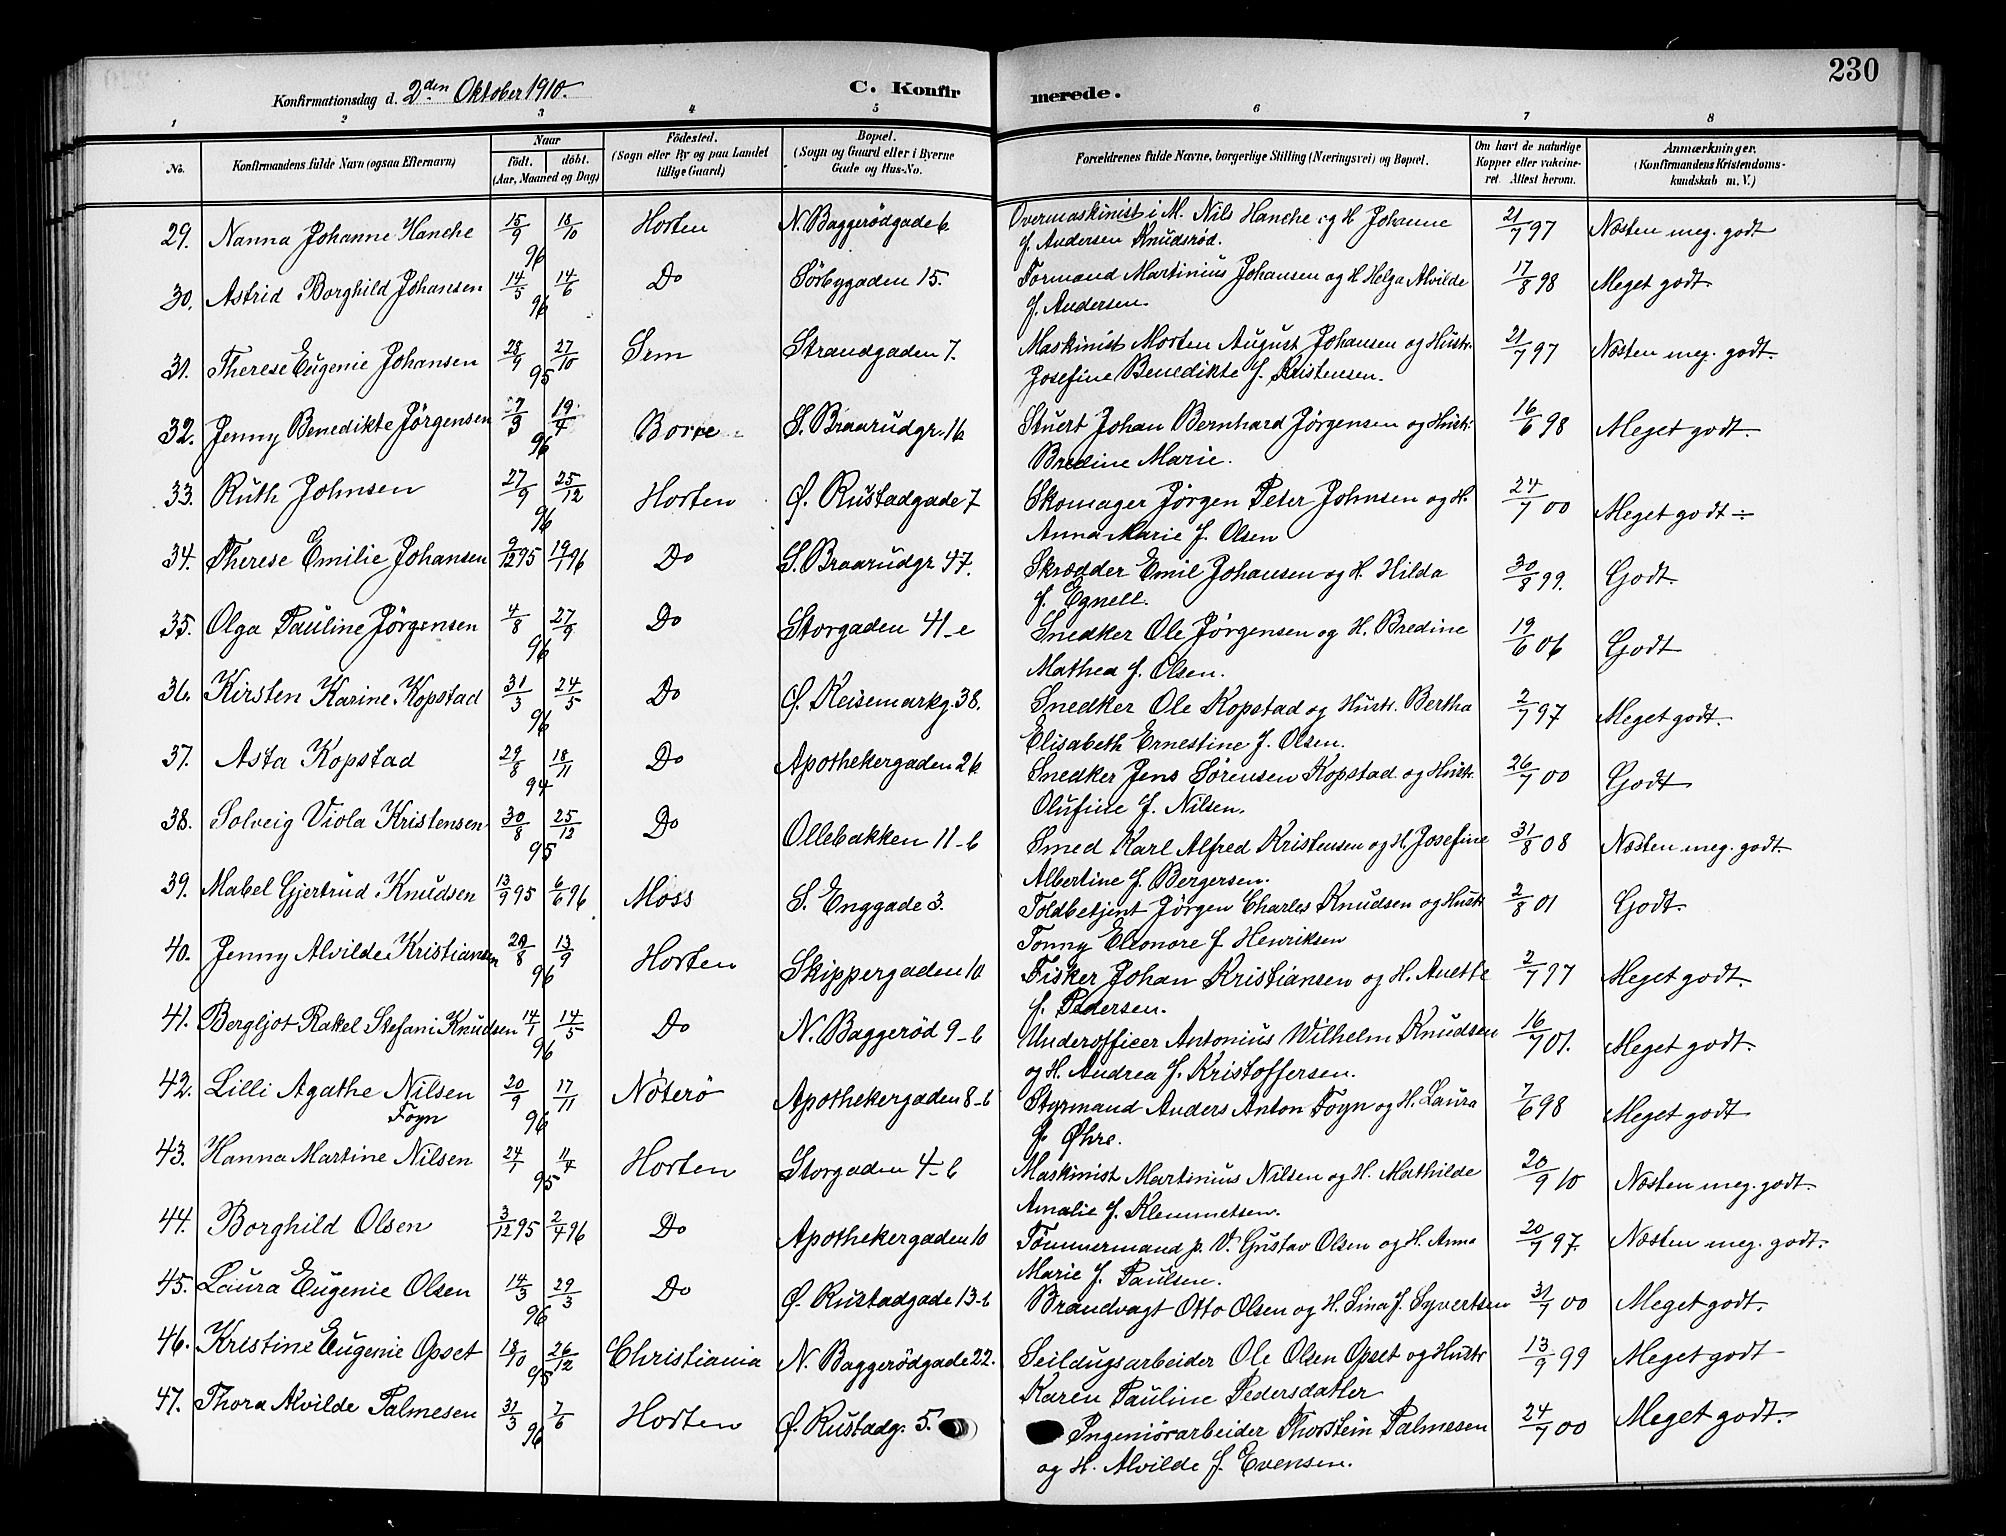 230
Konfirmationsdag d. 2den Oktober 1910. C. Konfir merede.
1 2 3 4 5 6 7 8
No. Konfirmandens fulde Navn (ogsaa Efternavn) Naar født. døbt. (Aar, Maaned og Dag) Födested. (Sogn eller By og paa Landet tillige Gaard) Bopæl. (Sogn og Gaard eller i Byerne Gade og Hus-No. Forældrenes fulde Navne, borgerlige Stilling (Næringsvei) og Bopæl. Om havt de naturlige Kopper eller vakcineret. Attest herom. Anmærkninger. (Konfirmandens Kristendomskundskab m. V.)
29. Nanna Johanne Hanche 15/9 96 18/10 Horten N. Baggerödgade 6 Overmaskinist i M. Nils Hanche og H. Johanne 21/7 97 Næsten meg. godt
f. Andersen Knudsrød.
30. Astrid Borghild Johansen 14/5 96 14/6 Do Sörbygaden 15. Formand Martinius Johansen og H Helga Alvilde 17/8 98 Meget godt.
f. Andersen.
31. Therese Eugenie Johansen 23/9 95 27/10 Sem Strandgaden 7. Maskinist Morten August Johansen og Hustr. 21/7 97 Næsten meg. godt.
Josefine Benedikte f. Kristensen.
32. Jenny Benedikte Jörgensen 7/3 96 19/4 Borre S. Braarudgr. 16 Stuert Johan Bernhard Jørgensen og Hustr. 16/6 98 Meget godt.
Bredine Marie.
33. Ruth Johnsen 27/9 96 25/12 Horten Ø. Rustadgade 7 Skomager Jørgen Peter Johnsen og H. 24/7 00 Meget godt ÷
Anna Marie f. Olsen
34. Therese Emilie Johansen 9/12 95 19/1 96 Do S. Braarudgr 47. Skrædder Emil Johansen og H. Hilda 30/8 99. Godt.
f. Egnell.
35. Olga Pauline Jörgensen 4/8 96 27/9 Do Storgaden 41-e Snedker Ole Jörgensen og H. Bredine 19/6 06 Godt
Mathea f. Olsen.
36. Kirsten Karine Kopstad 31/3 96 24/5 Do Ø. Keisemarkg. 38. Snedker Ole Kopstad og Hustr. Bertha 2/7 97 Meget godt.
Elisabeth Ernestine f. Olsen.
37. Asta Kopstad 29/8 94 18/11 Do Apothekergaden 26 Snedker Jens Sörensen Kopstad og Hustr. 26/7 00 Godt
Olufine f. Nilsen.
38. Solveig Viola Kristensen 30/8 95 25/12 Do Ollebakken 11-b Smed Karl Alfred Kristensen og H. Josefine 31/8 08 Næsten meg. godt.
Albertine f. Bergersen.
39. Mabel Gjertrud Knudsen 13/9 95 6/6 96 Moss S. Enggade 3. Toldbetjent Jörgen Charles Knudsen og Hustr 2/8 01 Godt.
Tonny Eleonore f Henriksen
40. Jenny Alvilde Kristiansen 29/8 96 13/9 Horten Skippergaden 10 Fisker Johan Kristiansen og H. Anette 2/7 97 Meget godt.
f. Pedersen.
41. Bergljot Rakel Stefani Knudsen 14/1 96 14/5 Do N. Baggerød 9-b Underofficer Antonius Wilhelm Knudsen 16/7 01. Meget godt.
og H. Andrea f. Kristoffersen.
42. Lilli Agathe Nilsen 20/9 96 17/11 Nöterö Apothekergaden 8-b Styrmand Anders Anton Foyn og H. Laura 7/6 98 Meget godt
Foyn f. Øhre.
43. Hanna Martine Nilsen 24/1 95 11/4 Horten Storgaden 4-b Maskinist Martinius Nilsen og H. Mathilde 20/9 10 Næsten meg. godt.
Amalie f. Klemmetsen.
44. Borghild Olsen 3/12 95 2/4 96 Do Apothekergaden 10 Tömmermand p. V. Gustav Olsen og H. Anna 20/7 97. Næsten meg. godt.
Marie f. Paulsen.
45. Laura Eugenie Olsen 14/3 96 29/3 Do Ø. Rustadgade 13-b Brandvagt Otto Olsen og H. Lina f. Syvertsen 31/7 00 Meget godt.
46. Kristine Eugenie Opset 18/10 95 26/12 Christiania N. Baggerödgade 22. Seildugsarbeider Ole Olsen Opset og Hustr 13/9 99 Meget godt
Karen Pauline Pedersdatter
47. Thora Alvilde Palmesen 31/3 96 7/6 Horten Ø. Rustadg. 5. Ingeniörarbeider Thorstein Palmesen 24/7 00 Meget godt.
og H. Alvilde f. Evensen.